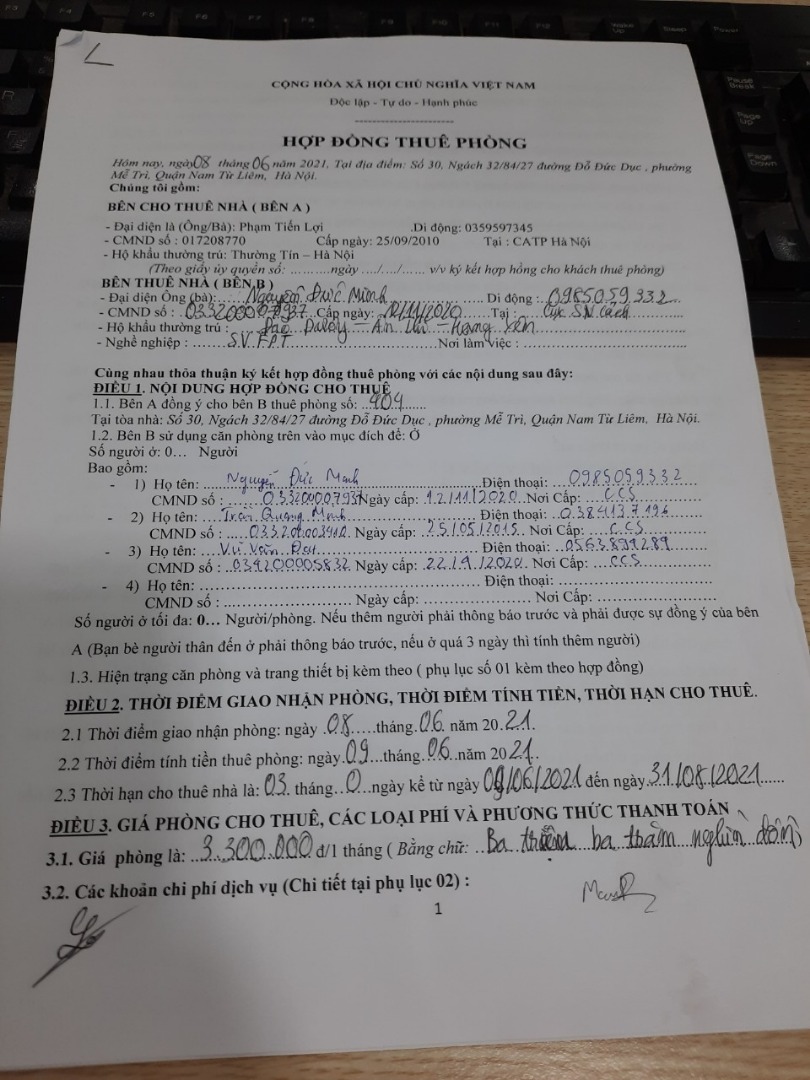 CỘNG HÒA XÃ HỘI CHỦ NGHĨA VIỆT NAM
Độc lập - Tự do - Hạnh phúc
HỢP ĐỒNG THUÊ PHÒNG
Hôm nay, ngày 08 tháng 06 năm 2021. Tại địa điểm: Số 30, Ngách 32/84/27 đường Đỗ Đức Dục , phường
Mễ Trì, Quận Nam Từ Liêm, Hà Nội.
Chúng tôi gồm:
BÊN CHO THUÊ NHÀ ( BÊN A )
- Đại diện là (Ông/Bà): Phạm Tiến Lợi .Di động: 0359597345
- CMND số : 017208770 Cấp ngày: 25/09/2010 Tại : CATP Hà Nội
- Hộ khẩu thường trú: Thường Tín – Hà Nội
(Theo giấy ủy quyền số: ..........ngày ..../..../...... v/v ký kết hợp hồng cho khách thuê phòng)
BÊN THUÊ NHÀ ( BÊN B )
- Đại diện Ông (bà): Nguyễn Đức Minh Di động : 0985059332
- CMND số : 033200007937 Cấp ngày: 12/11/2020 Tại : Cục
- Hộ khẩu thường trú : Đào Dương – Ân Thi – Hưng Yên
- Nghề nghiệp : S.V FPT Nơi làm việc :
Cùng nhau thỏa thuận ký kết hợp đồng thuê phòng với các nội dung sau đây:
ĐIỀU 1. NỘI DUNG HỢP ĐỒNG CHO THUÊ
1.1. Bên A đồng ý cho bên B thuê phòng số: 404
Tại tòa nhà: Số 30, Ngách 32/84/27 đường Đỗ Đức Dục , phường Mễ Trì, Quận Nam Từ Liêm, Hà Nội.
1.2. Bên B sử dụng căn phòng trên vào mục đích để: Ở
Số người ở: 0… Người
Bao gồm:
- 1) Họ tên: Nguyễn Đức Minh Điện thoại: 0985059332
CMND số : 033200007937 Ngày cấp: 12/11/2020 Nơi Cấp: CCS
- 2) Họ tên: Trần Quang Minh Điện thoại: 0384137196
CMND số : Ngày cấp: 25/05/2015 Nơi Cấp: CCS
- 3) Họ tên: Vũ Văn Đạt Điện thoại: 0563899289
CMND số : 034200005832 Ngày cấp: 22/9/2020 Nơi Cấp: CCS
- 4) Họ tên: Điện thoại:
CMND số : Ngày cấp: Nơi Cấp:
Số người ở tối đa: 0… Người/phòng. Nếu thêm người phải thông báo trước và phải được sự đồng ý của bên
A (Bạn bè người thân đến ở phải thông báo trước, nếu ở quá 3 ngày thì tính thêm người)
1.3. Hiện trạng căn phòng và trang thiết bị kèm theo ( phụ lục số 01 kèm theo hợp đồng)
ĐIỀU 2. THỜI ĐIỂM GIAO NHẬN PHÒNG, THỜI ĐIỂM TÍNH TIỀN, THỜI HẠN CHO THUÊ.
2.1 Thời điểm giao nhận phòng: ngày 08 tháng 06 năm 2021.
2.2 Thời điểm tính tiền thuê phòng: ngày 09 tháng 06 năm 2021
2.3 Thời hạn cho thuê nhà là: 03 tháng 0 ngày kể từ ngày 09/06/2021 đến ngày 31/08/2021
ĐIỀU 3. GIÁ PHÒNG CHO THUÊ, CÁC LOẠI PHÍ VÀ PHƯƠNG THỨC THANH TOÁN
3.1. Giá phòng là: 3.300.000 đ/1 tháng ( Bằng chữ: Ba triệu ba trăm nghìn đồng)
3.2. Các khoản chi phí dịch vụ (Chi tiết tại phụ lục 02) :
1